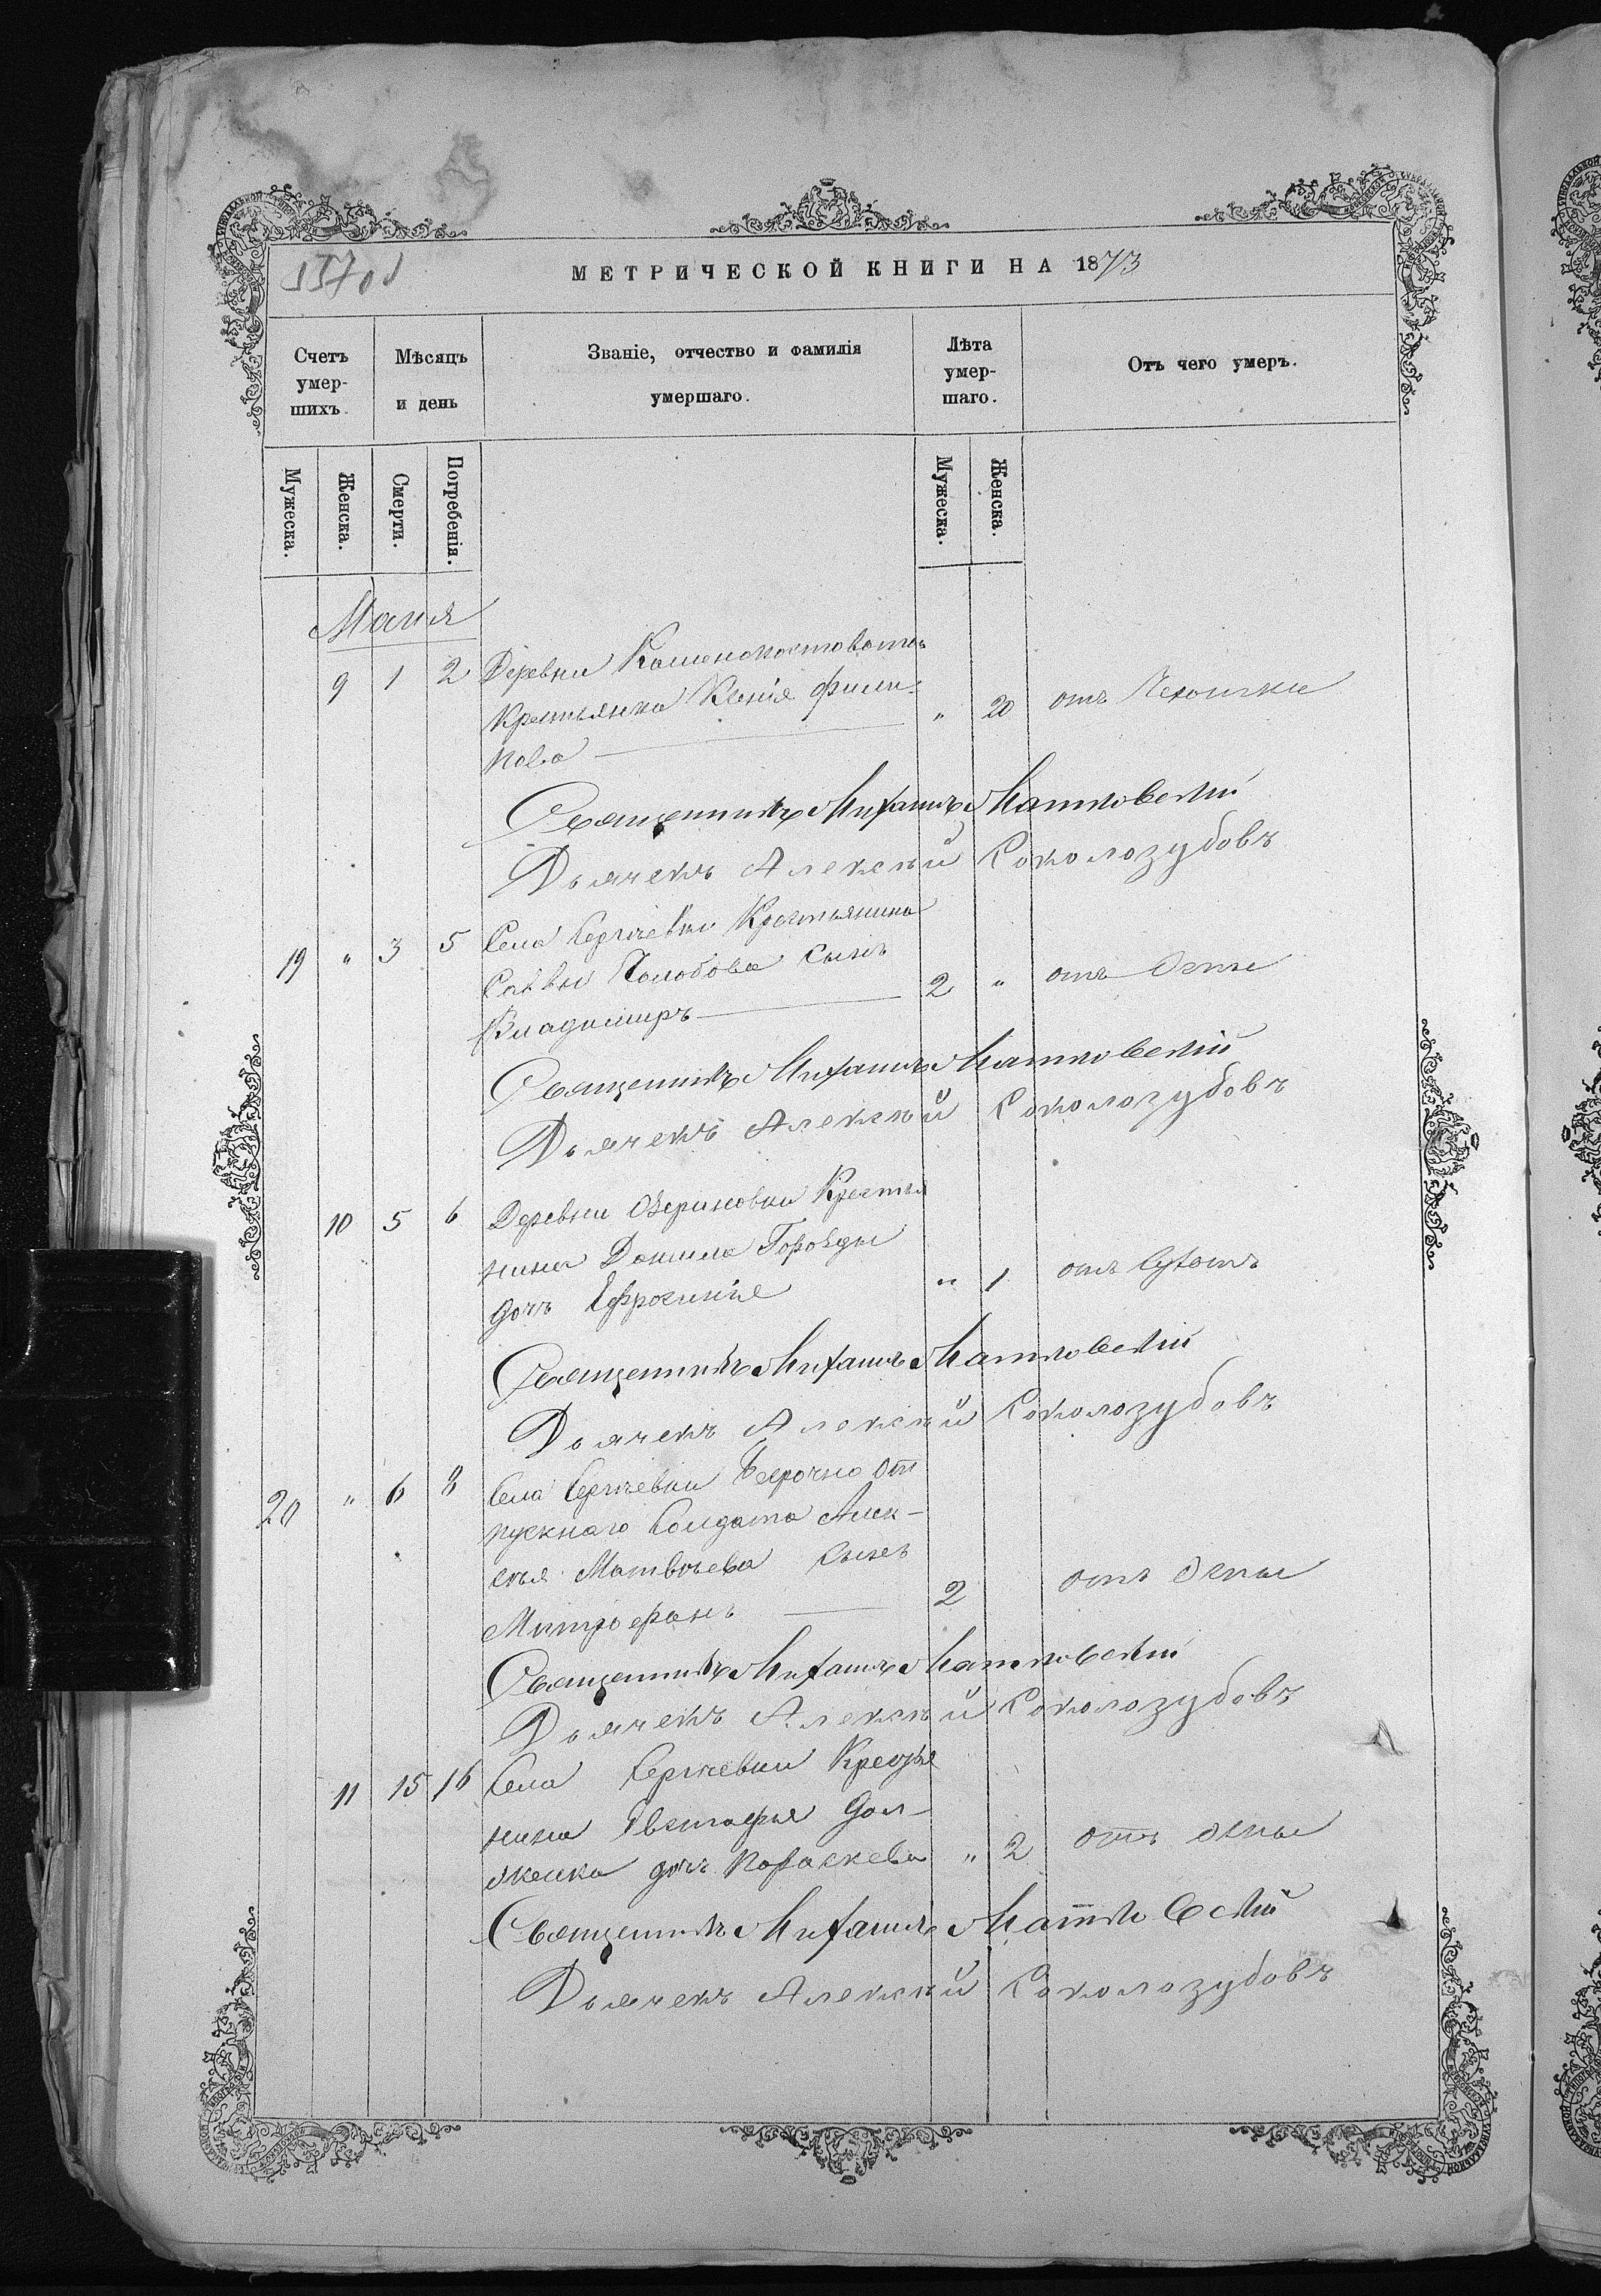 МЕТРИЧЕСКОЙ КНИГИ НА 1873
Счетъ умер-шихъ.
Мѣсяцъ и день
Званіе, отчество и фамилія умершаго.
Лѣта умер-шаго.
Отъ чего умеръ.
Мужеска.
Женска.
Смерти.
Погребенія.
Мужеска.
Женска.
Маія
9 1 2 Деревни
Крестьянка Ксенія Фили-
пова „ 20 отъ
Священникъ Михаилъ
Дьячекъ Алексѣй Соколозубовъ
19 „ 3 5 Села Сергѣевки Крестьянина
Саввы Голобова сынъ
Владимиръ 2 „ отъ Оспы
Священникъ Михаилъ
Дьячекъ Алексѣй Соколозубовъ
10 5 6 Деревни Озериновки Крестья
нина Даниила
дочь Ефросинія „ 1 отъ Сухотъ
Священникъ Михаилъ
Дьячекъ Алексѣй Соколозубовъ
20 „ 6 8 Села Сергѣевки Безсрочно От
пускнаго Солдата Алек-
сѣя Матвѣева сынъ
Митрофанъ 2 отъ Оспы
Священникъ Михаилъ
Дьячекъ Алексѣй Соколозубовъ
11 15 16 Села Сергѣевки Крестья
нина Евстафья Дол-
женка дочь Параскева „ 2 отъ оспы
Священникъ Михаилъ
Дьячекъ Алексѣй Соколозубовъ